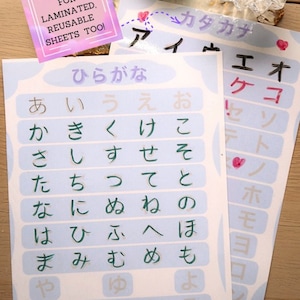 FOR
LAMINATED,
REUSABLE
SHEETS TOO!
カタカナ
アイウエオ
ケコ
セソ
テト
ノ
ホ
モ
ヨ
ロ
ひらがな
あいうえお
かきくけこ
さしすせそ
たちつてと
なにぬねの
はひふへほ
まみむめも
やゆよ